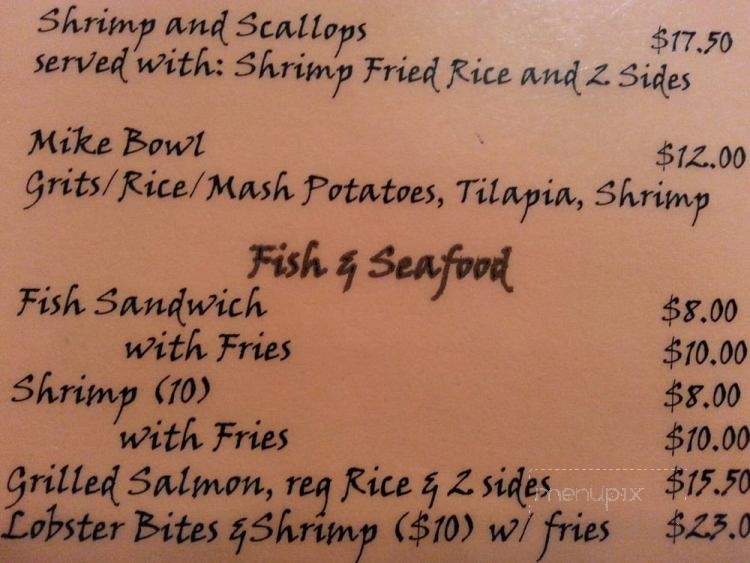 Shrimp and Scallops $17.50
served with: Shrimp Fried Rice and 2 Sides
Mike Bowl $12.00
Grits/Rice/Mash Potatoes, Tilapia, Shrimp
Fish & Seafood
Fish Sandwich $8.00
with Fries $10.00
Shrimp (10) $8.00
with Fries $10.00
Grilled Salmon, reg Rice & 2 sides $15.50
menupix
Lobster Bites &Shrimp ($10) w/ fries $23.0